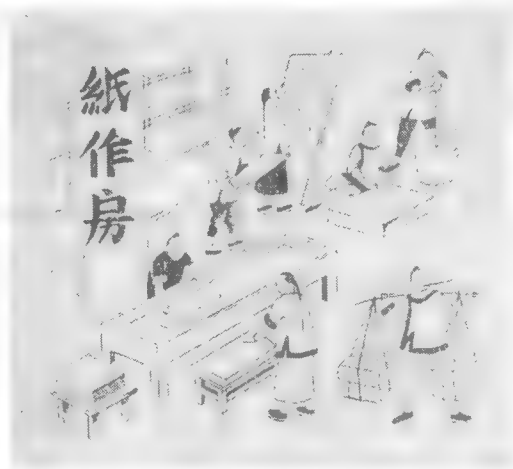 紙作房